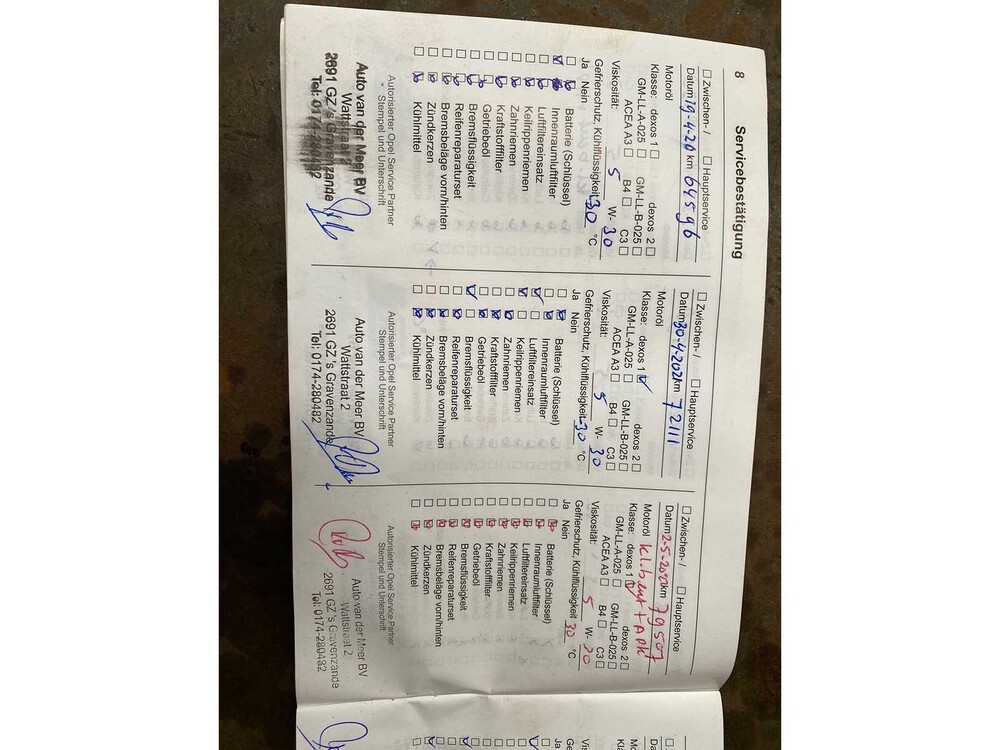 8
Servicebestätigung
Zwischen- / Hauptservice
Datum 19-4-20 km 64596
Motoröl
Klasse: dexos 1 dexos 2
GM-LL-A-025 GM-LL-B-025
ACEA A3 B4 C3
Viskosität: 5 W- 30
Gefrierschutz, Kühlflüssigkeit -30 °C
Ja Nein
Batterie (Schlüssel)
Innenraumluftfilter
Luftfiltereinsatz
Keilrippenriemen
Zahnriemen
Kraftstofffilter
Getriebeöl
Bremsflüssigkeit
Reifenreparaturset
Bremsbeläge vorn/hinten
Zündkerzen
Kühlmittel
Autorisierter Opel Service Partner
Stempel und Unterschrift
Auto van der Meer BV
Wattstraat 2
2691 GZ 's Gravenzande
Tel: 0174-280482
Zwischen- / Hauptservice
Datum 30-4-202 km 72111
Motoröl
Klasse: dexos 1 dexos 2
GM-LL-A-025 GM-LL-B-025
ACEA A3 B4 C3
Viskosität: 5 W- 30
Gefrierschutz, Kühlflüssigkeit -30 °C
Ja Nein
Batterie (Schlüssel)
Innenraumluftfilter
Luftfiltereinsatz
Keilrippenriemen
Zahnriemen
Kraftstofffilter
Getriebeöl
Bremsflüssigkeit
Reifenreparaturset
Bremsbeläge vorn/hinten
Zündkerzen
Kühlmittel
Autorisierter Opel Service Partner
Stempel und Unterschrift
Auto van der Meer BV
Wattstraat 2
2691 GZ 's Gravenzande
Tel: 0174-280482
Zwischen- / Hauptservice
Datum 2-5-2022 km 79507
Motoröl kl. beurt + apk
Klasse: dexos 1 dexos 2
GM-LL-A-025 GM-LL-B-025
ACEA A3 B4 C3
Viskosität: 5 W- 30
Gefrierschutz, Kühlflüssigkeit 30 °C
Ja Nein
Batterie (Schlüssel)
Innenraumluftfilter
Luftfiltereinsatz
Keilrippenriemen
Zahnriemen
Kraftstofffilter
Getriebeöl
Bremsflüssigkeit
Reifenreparaturset
Bremsbeläge vorn/hinten
Zündkerzen
Kühlmittel
Autorisierter Opel Service Partner
Stempel und Unterschrift
Auto van der Meer BV
Wattstraat 2
2691 GZ 's Gravenzande
Tel: 0174-280482